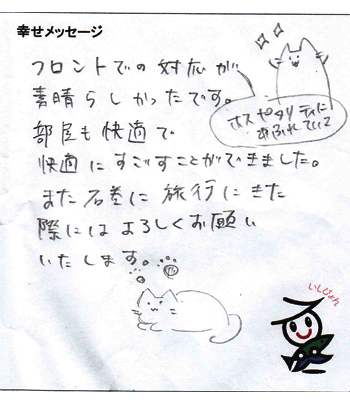 幸せメッセージ
フロントでの対応が
素晴らしかったです。
ホスピタリティに
あふれていて
部屋も快適で
快適にすごすことができました。
また石巻に旅行にきた
際にはよろしくお願い
いたします。
いしぴょん